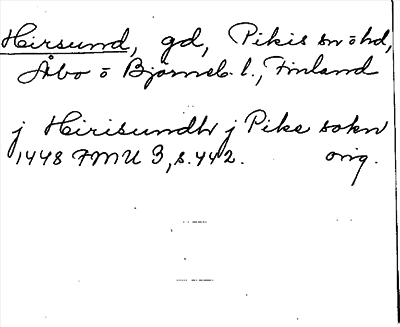 Hirsund, gd, Pikis sn o hd,
Åbo o Björneb. l., Finland
j Hirisundh j Pike sokn
1448 FMU 3, s. 442. orig.